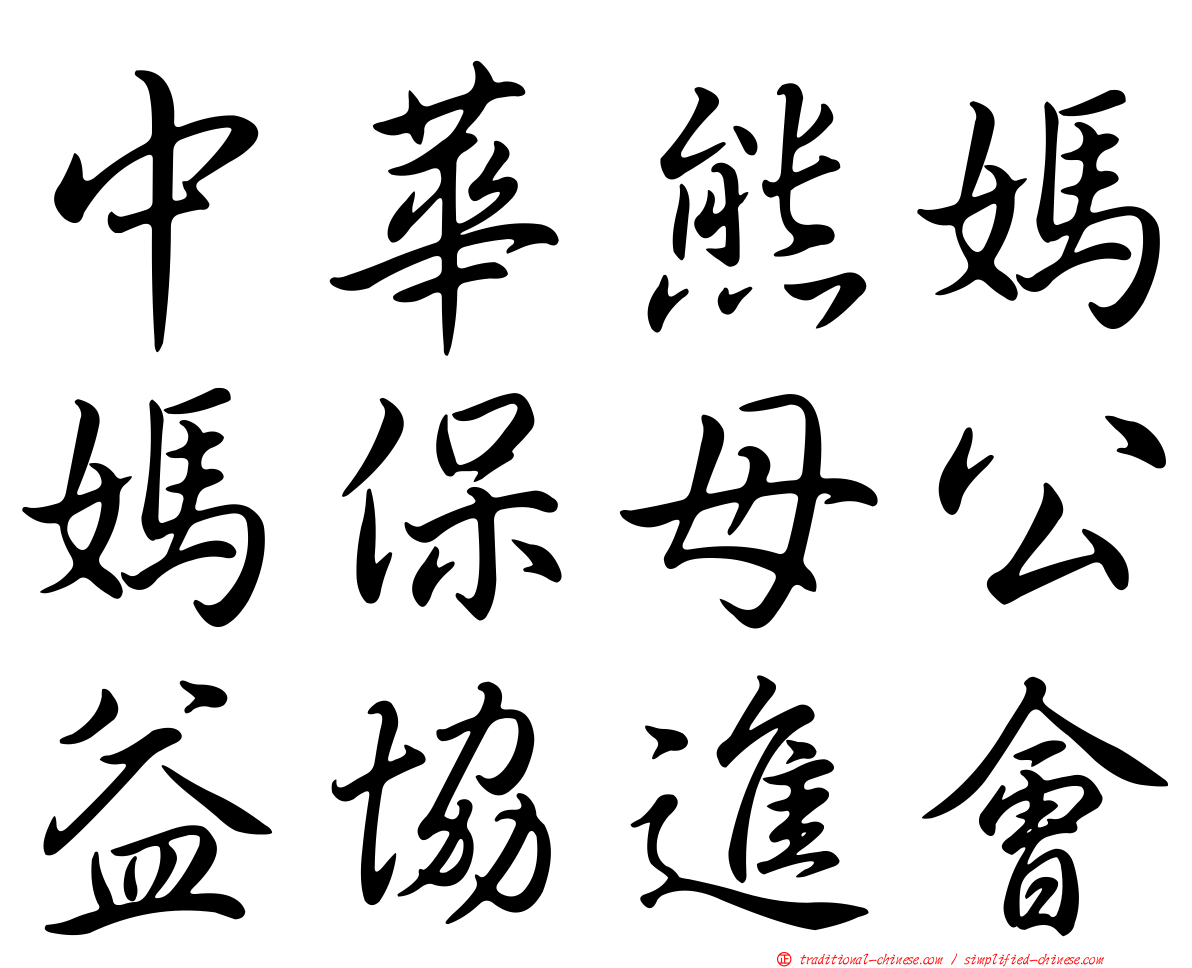 中華熊媽
媽保母公
益協進會
正 traditional-chinese.com / simplified-chinese.com